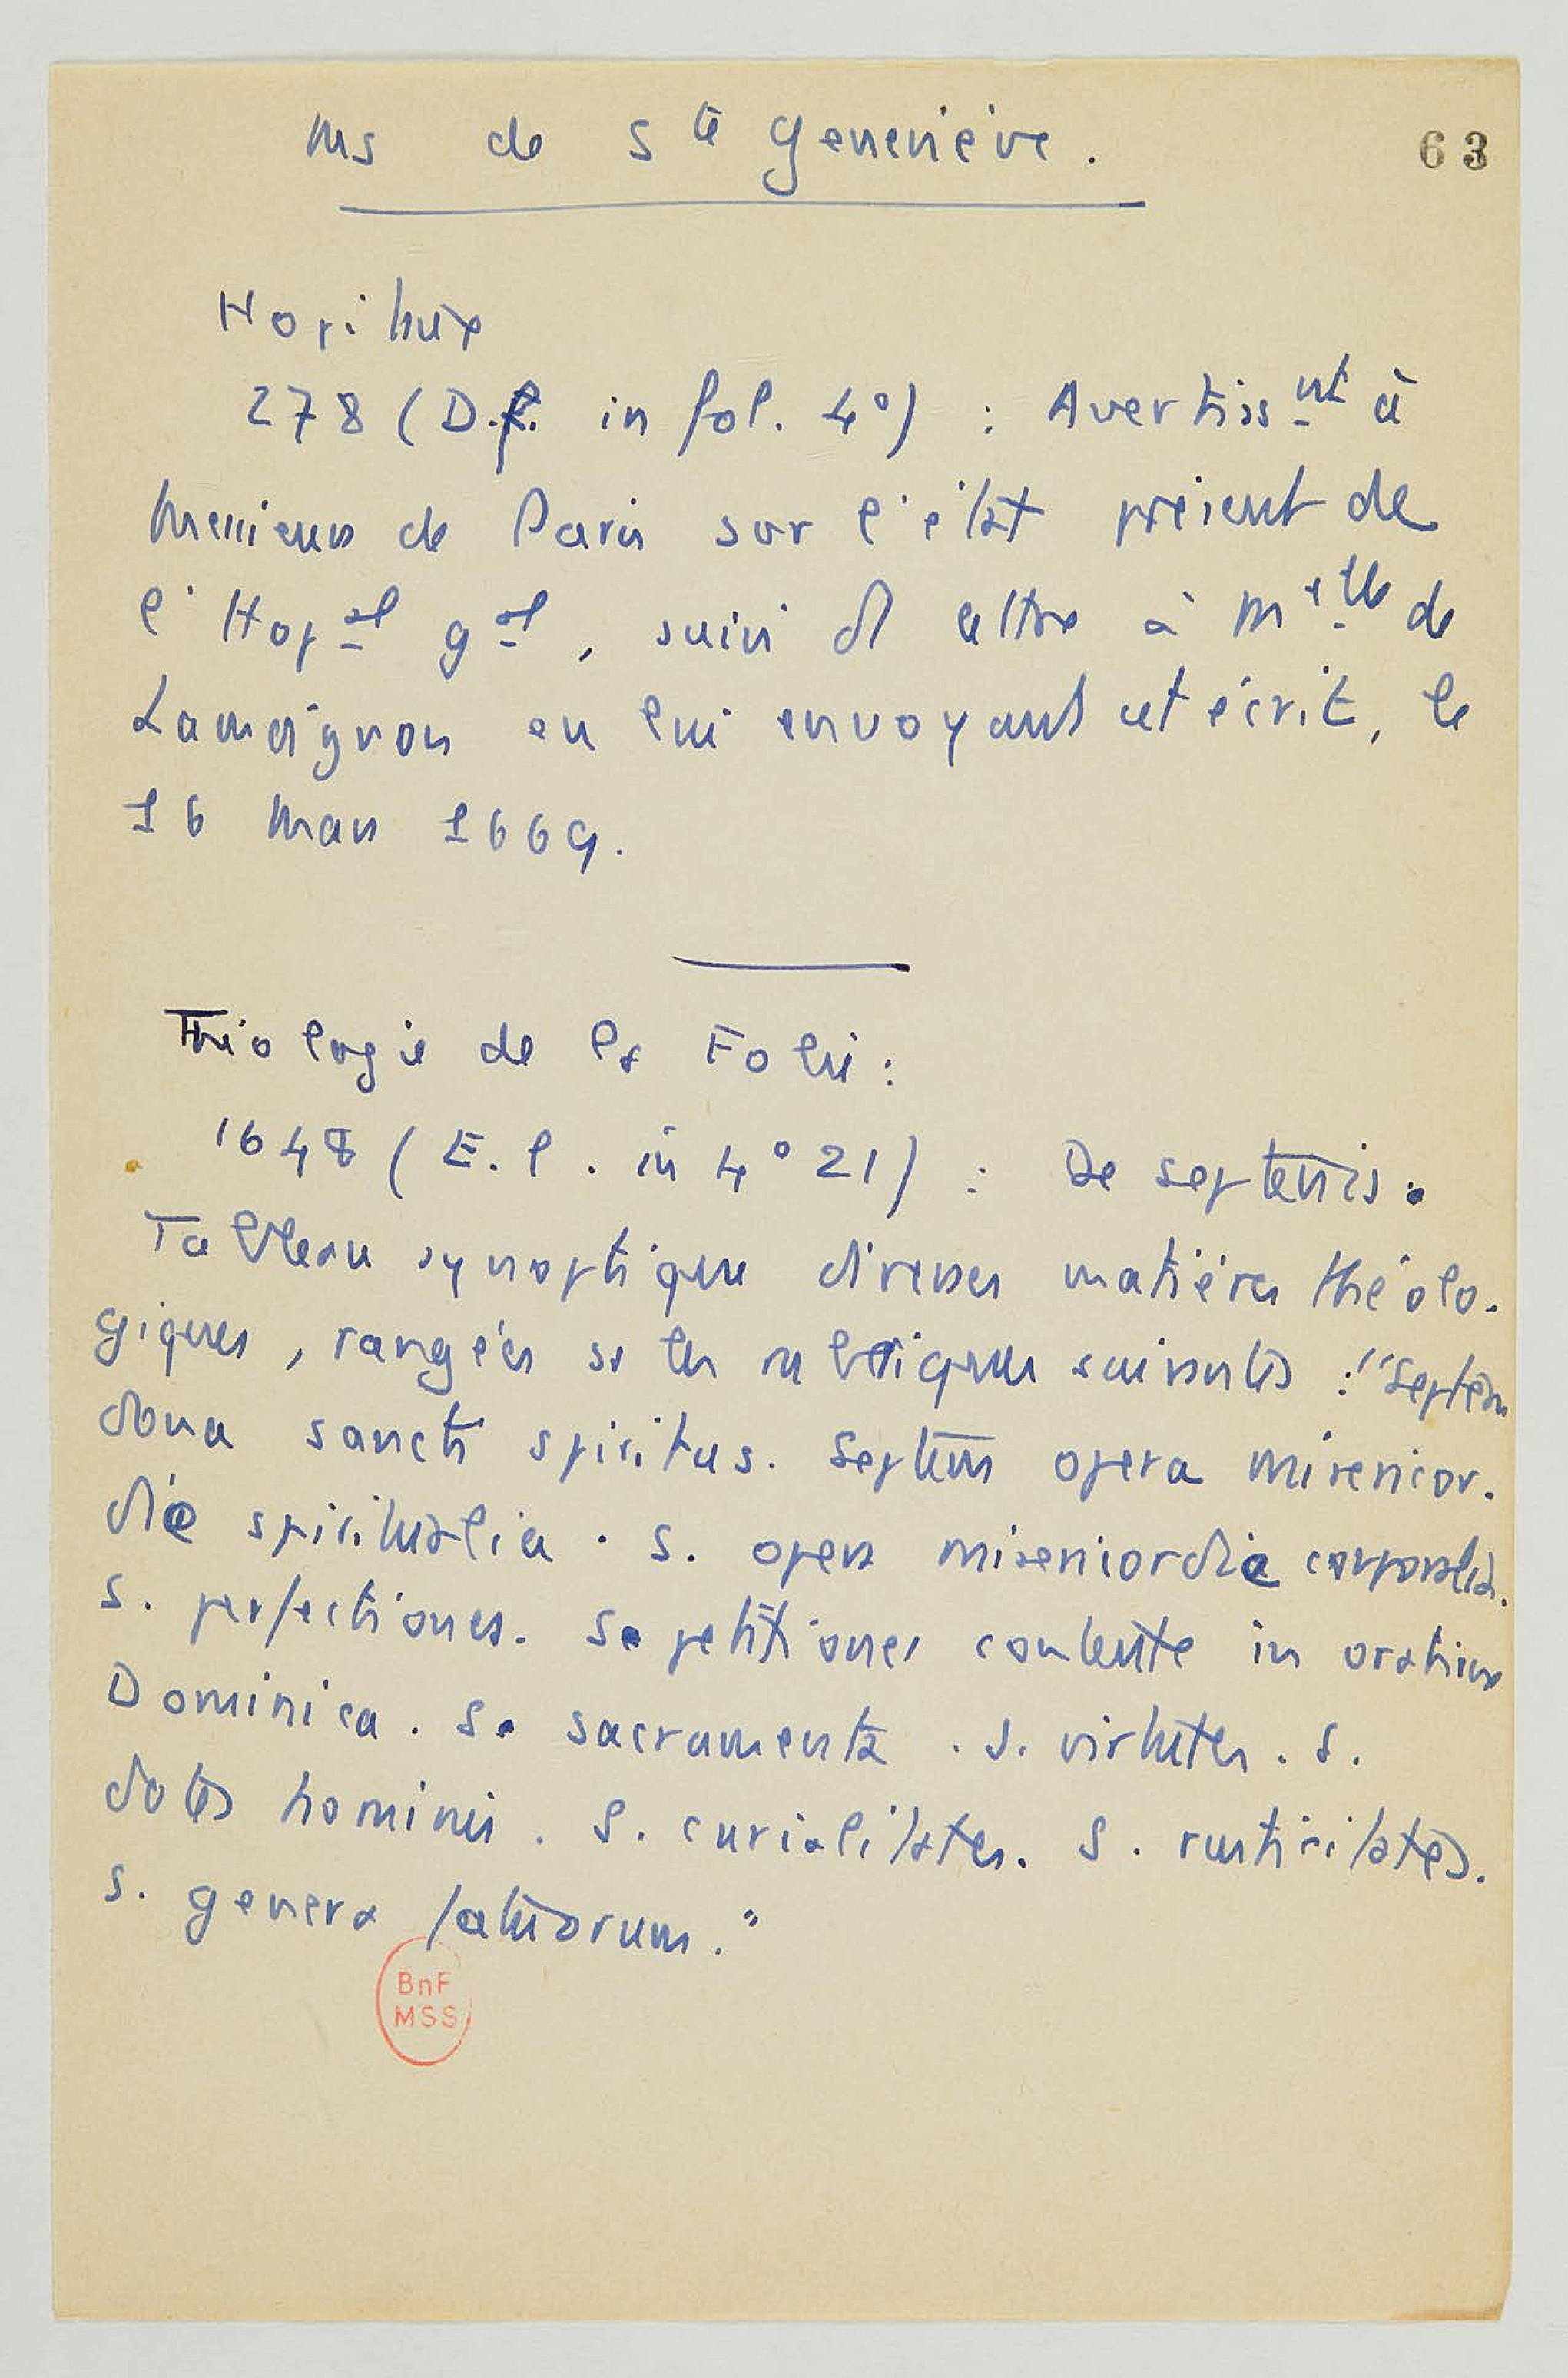 Ms de Ste Geneviève.
63
Hôpitaux
278 (D.f. in fol. 4°) : Avertissnt à
Messieurs de Paris sur l'état présent de
l'Hopal gal, suivi d lettre à Melle de
Lamoignon en lui envoyant cet écrit, le
16 mars 1669.
Théologie de la Folie :
1648 (E.l. in 4° 21) : De septenis.
Tableau synoptique diverses matières théolo-
giques, rangées ss les rubriques suivantes : "Septem
dona sancti spiritus. Septem opera misericor-
die spiritualia. S. opera misericordie corporalia.
S. perfectiones. S. petitiones contente in oratione
Dominica. S. sacramenta. S. virtutes. S.
dotes hominis. S. curialitates. S. rusticitates.
S. genera fatuorum."
BnF
MSS